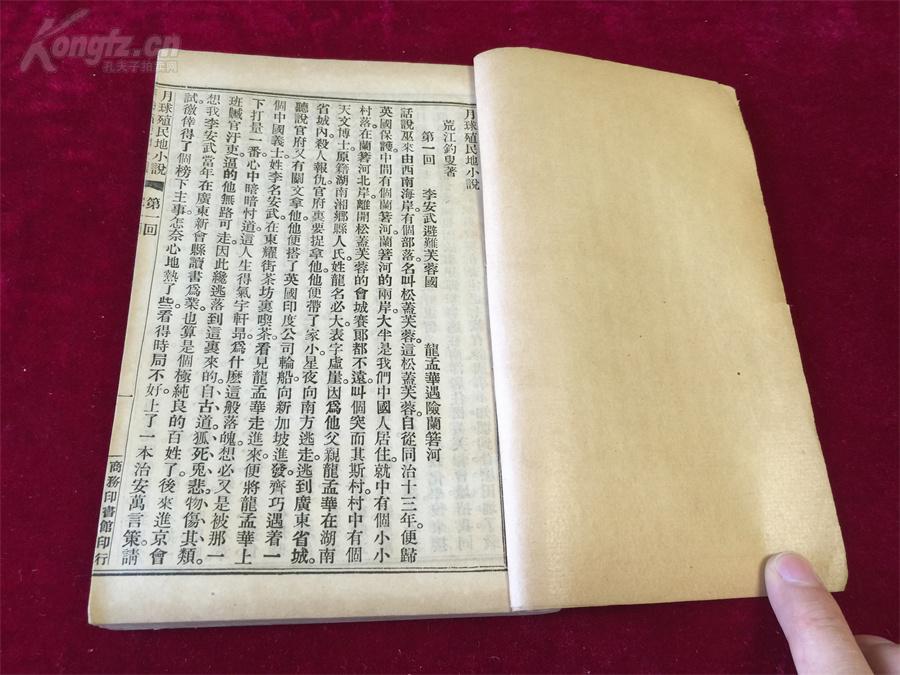 Kongfz.cn
孔夫子拍卖网
月球殖民地小說
荒江釣叟著
第一回 李安武避難芙蓉國 龍孟華遇險蘭箬河
話說巫來由西南海岸有個部落名叫松蓋芙蓉。這松蓋芙蓉。自從同治十三年。便歸
英國保護。中間有個蘭箬河。蘭箬河的兩岸大半是我們中國人居住。就中有個小小
村落。在蘭箬河北岸。離開松蓋芙蓉的會城賽郎。都不遠。叫個突而其斯村。村中有個
天文博士。原籍湖南湘鄉縣人氏。姓龍名必大。表字虛崖。因爲他父親龍孟華在湖南
省城內殺人報仇。官府裏要捉拿他。他便帶了家小。星夜向南方逃走。逃到廣東省城。
聽說官府又有關文拿他。他便搭了英國印度公司輪船。向新加坡進發。齊巧遇着一
個中國義士。姓李名安武。在東耀街茶坊裏喫茶。看見龍孟華走進來。便將龍孟華上
下打量一番。心中暗暗忖道。這人生得氣宇軒昂。爲什麽這般落魄。想必又是被那一
班贓官汙吏。逼的他無路可走。因此纔逃落到這裏來的。自古道狐死兎悲。物傷其類。
想我李安武當年在廣東新會縣讀書爲業。也算是個極純良的百姓了。後來進京會
試。徼倖得了個榜下主事。怎奈心地熱了些。看得時局不好。上了一本治安萬言策。請
月球殖民地小說 第一回 一 商務印書館印行